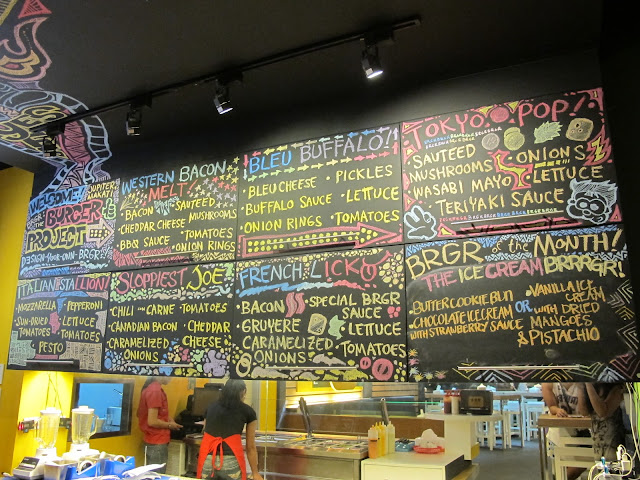 WELCOME!
JUPITER
MAKATI
to the
BURGER
PROJECT
DESIGN-YOUR-OWN-BRGR!
WESTERN BACON
MELT!
• BACON
• SAUTEED
MUSHROOMS
• CHEDDAR CHEESE
• BBQ SAUCE
• TOMATOES
• ONION RINGS
BLEU BUFFALO!
• BLEU CHEESE
• PICKLES
• BUFFALO SAUCE
• LETTUCE
• ONION RINGS
• TOMATOES
TOKYO POP!
• SAUTEED
MUSHROOMS
• ONIONS
• WASABI MAYO
• LETTUCE
• TERIYAKI SAUCE
ITALIAN STALLION!
• MOZZARELLA
• PEPPERONI
• SUN-DRIED
TOMATOES
• LETTUCE
• TOMATOES
• PESTO
SLOPPIEST JOE!
• CHILI con CARNE
• TOMATOES
• CANADIAN BACON
• CHEDDAR
CHEESE
• CARAMELIZED
ONIONS
FRENCH LICK
• BACON
• SPECIAL BRGR
SAUCE
• GRUYERE
• LETTUCE
• CARAMELIZED
ONIONS
• TOMATOES
BRGR of the MONTH!
THE ICE CREAM BRRRGR!
• BUTTER COOKIE BUN
• CHOCOLATE ICE CREAM
WITH STRAWBERRY SAUCE
OR
• VANILLA ICE
CREAM
WITH DRIED
MANGOES
& PISTACHIO